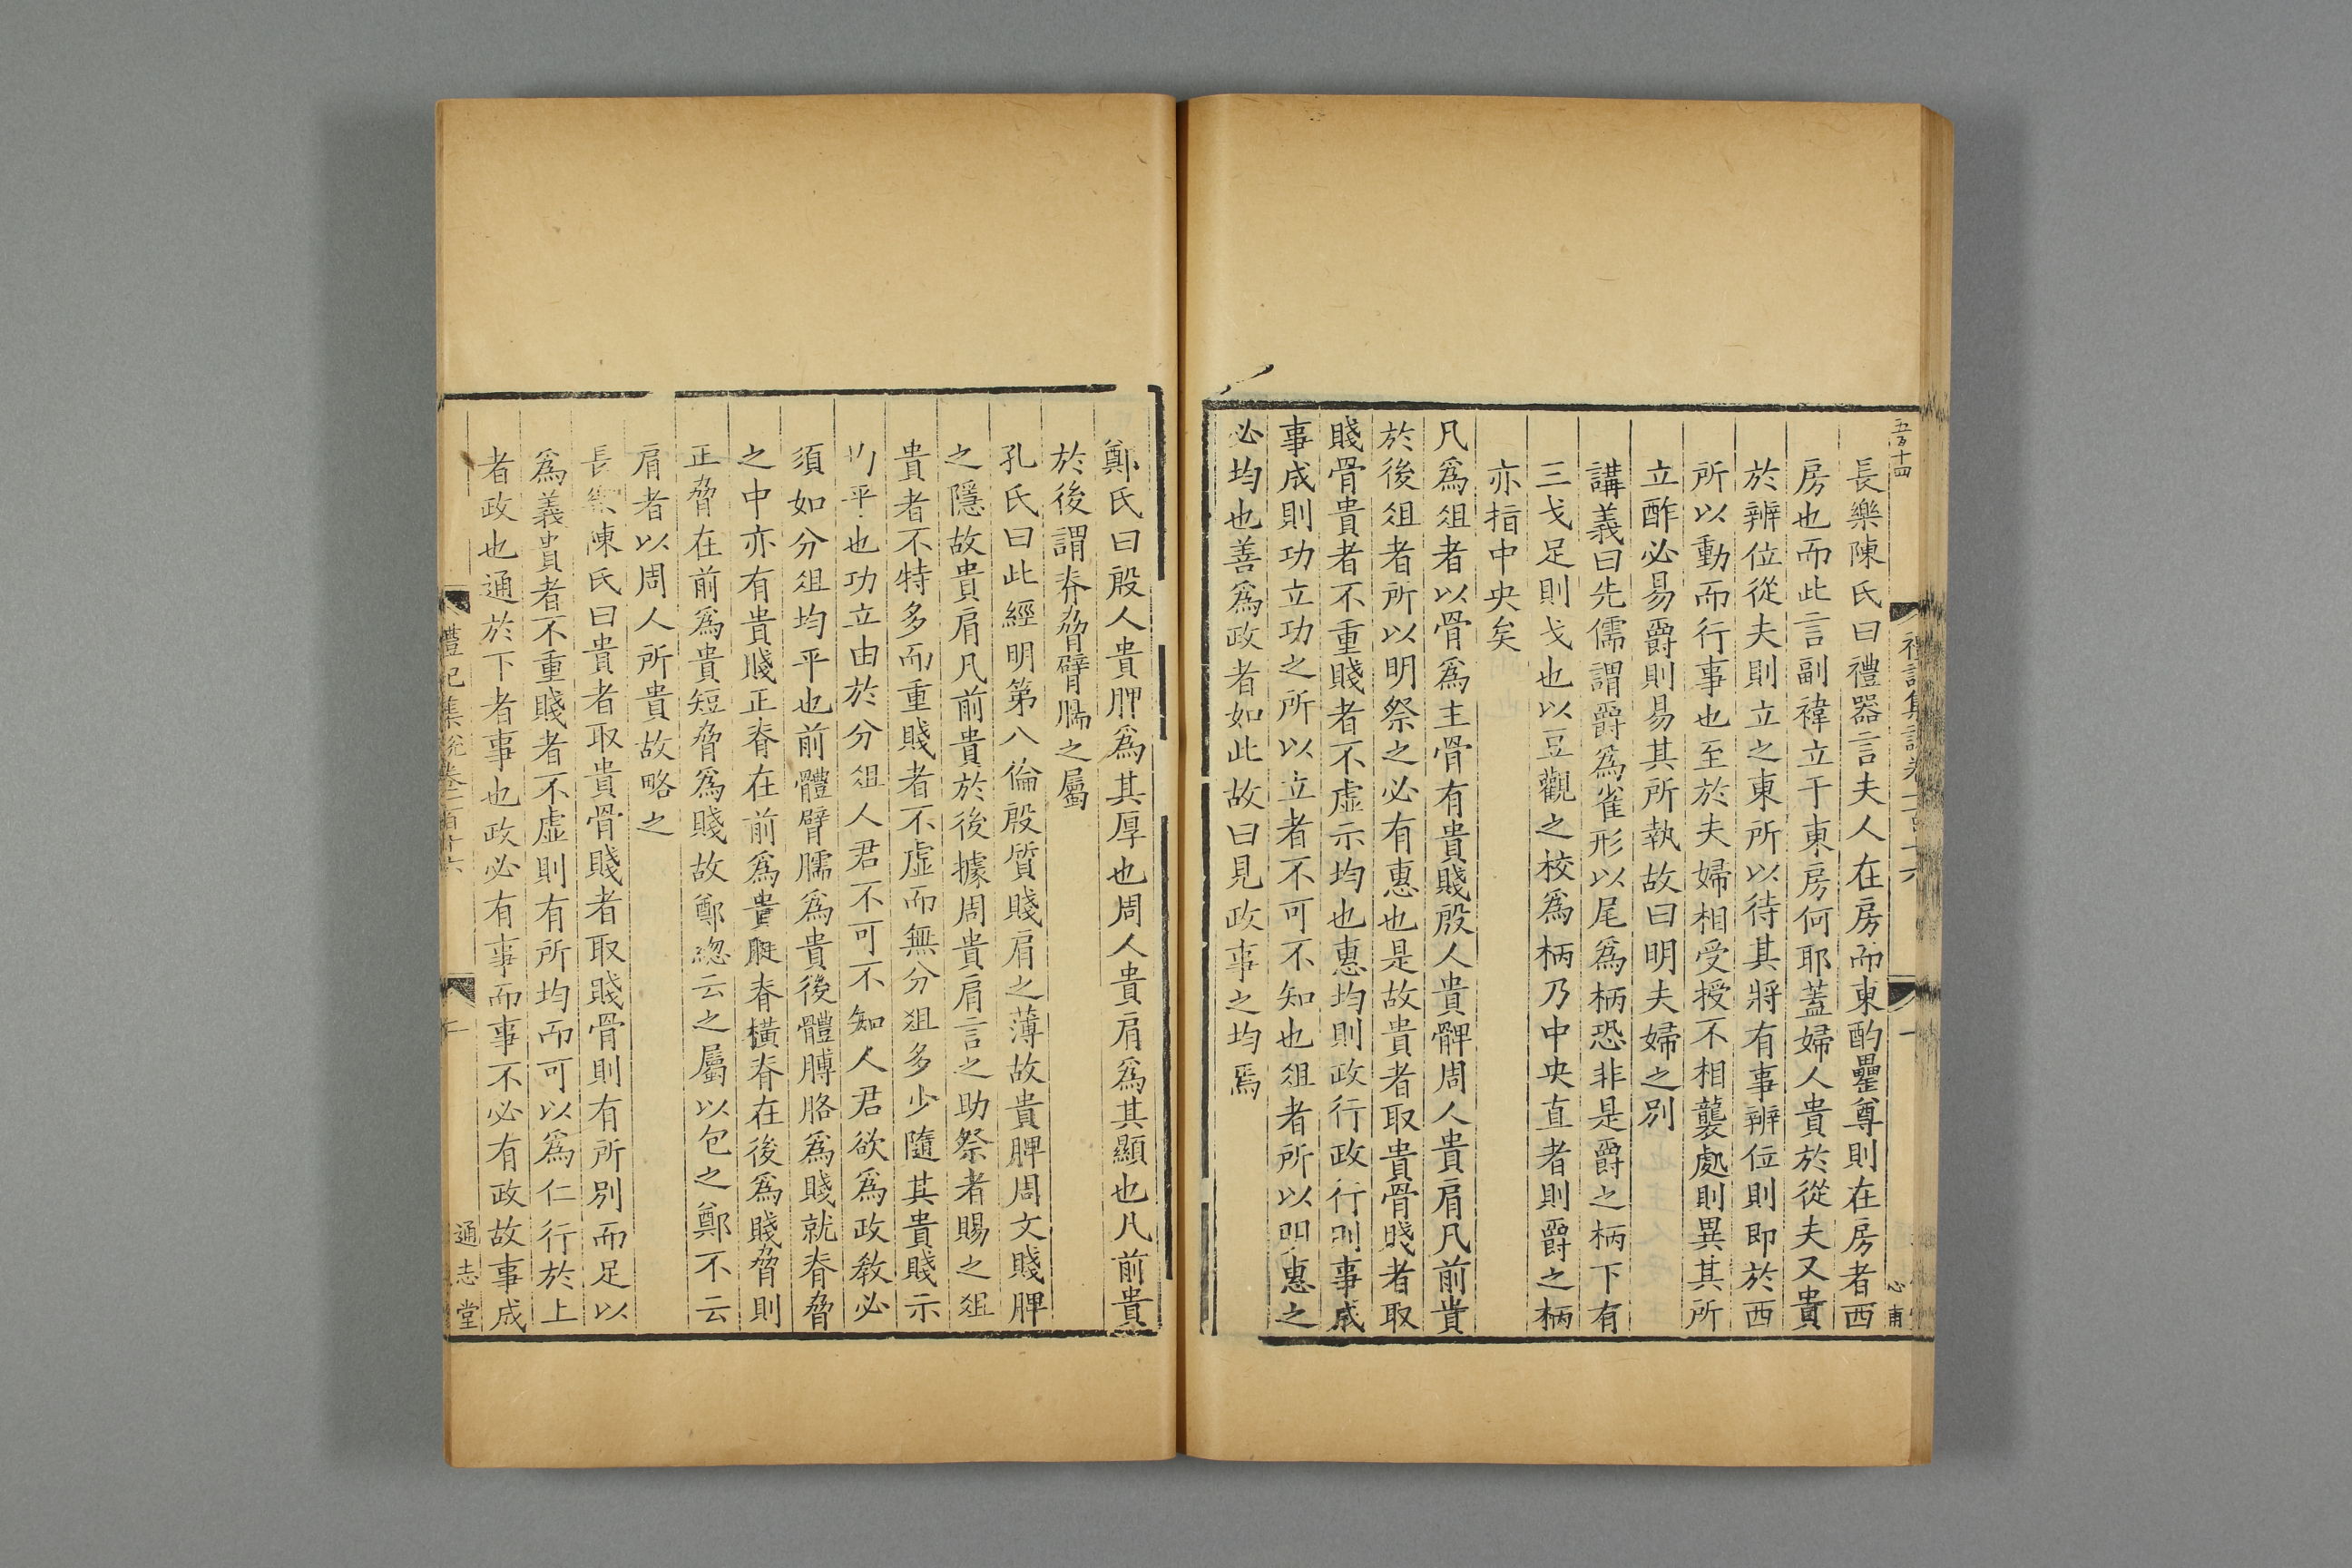 五百十四
長樂陳氏曰禮器言夫人在房而東酌罍尊則在房者西
房也而此言副褘立于東房何耶蓋婦人貴於從夫又貴
於辨位從夫則立之東所以待其將有事辨位則即於西
所以動而行事也至於夫婦相受授不相襲處則異其所
立酢必易爵則易其所執故曰明夫婦之別
講義曰先儒謂爵為雀形以尾為柄恐非是爵之柄下有
三戈足則戈也以豆觀之校為柄乃中央直者則爵之柄
亦指中央矣
凡為俎者以骨為主骨有貴賤殷人貴髀周人貴肩凡前貴
於後俎者所以明祭之必有惠也是故貴者取貴骨賤者取
賤骨貴者不重賤者不虛示均也惠均則政行政行則事成
事成則功立功之所以立者不可不知也俎者所以明惠之
必均也善為政者如此故曰見政事之均焉
鄭氏曰殷人貴胛為其厚也周人貴肩為其顯也凡前貴
於後謂脊脅臂臑之屬
孔氏曰此經明第八倫殷質賤肩之薄故貴胛周文賤胛
之隱故貴肩凡前貴於後據周貴肩言之助祭者賜之俎
貴者不特多而重賤者不虛而無分俎多少隨其貴賤示
均平也功立由於分俎人君不可不知人君欲為政教必
須如分俎均平也前體臂臑為貴後體膊胳為賤就脊脅
之中亦有貴賤正脊在前為貴脡脊橫脊在後為賤脅則
正脅在前為貴短脅為賤故鄭緫云之屬以包之鄭不云
肩者以周人所貴故略之
長樂陳氏曰貴者取貴骨賤者取賤骨則有所別而足以
為義貴者不重賤者不虛則有所均而可以為仁行於上
者政也通於下者事也政必有事而事不必有政故事成
禮記集說卷一百十六
通志堂